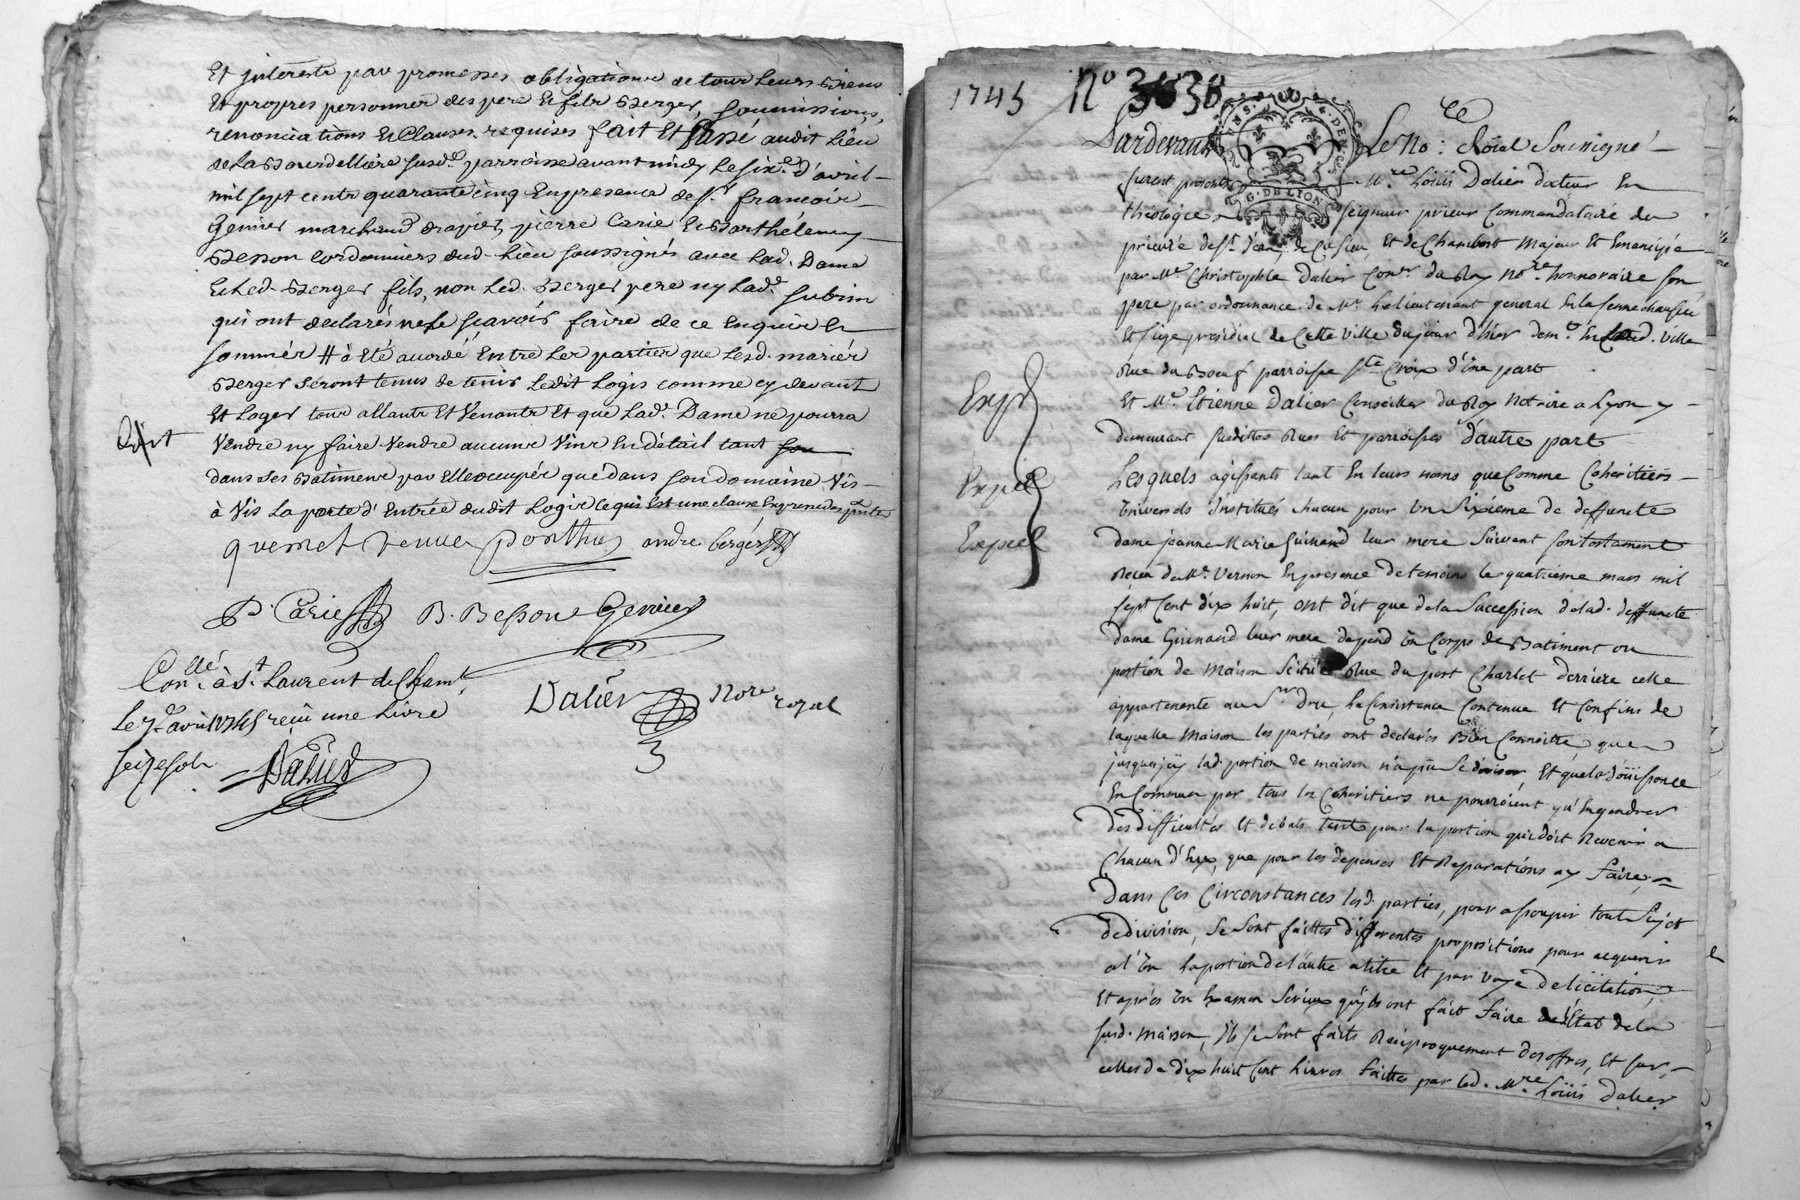 Et jnterests par promesses obligations de tous leurs Biens
Et propres personnes des pere Et fils Berger, soumissions,
renonciations Et Clauses requises fait Et passé audit Lieu
de la Bourdelliere susd.e parroisse avant midy Le six.e d'avril
mil sept cents quarante cinq En presence de S.r francois
Genier marchand drapier, pierre Carie Et Barthélemy
Besson Cordonniers dud. Lieu soussignés avec lad. Dame
Et Led. Berger fils, non Led. Berger pere ny Lad.e Subim
qui ont declarés ne le scavoir faire de ce Enquis Et
sommés # à Eté accordé Entre Les parties que Lesd. mariés
Berger seront tenus de tenir Ledit Logis comme cy devant
Et Loger tous allants Et Venants Et que Lad.e Dame ne pourra
Vendre ny faire Vendre aucuns Vins En détail tant
dans ses Batiments par Elle occupés que dans son domaine Vis
à Vis La porte d'Entrée dudit Logis ce qui Est une clause Expresse des p.ntes
quemet Veuve Ponthus andre berger
P. Carie B. Besson Genier
Con.llé à S.t Laurent de Cham.t
Le 7.e avril 1745 reçu une Livre
seize sols
Dalier No.re royal
1745 N.o 3838
Pardevant Le No.re Roïal Sousigné
G. DE LION
furent presents M.re Loüis Dalier Docteur En
théologie Seigneur prieur Commandataire du
prieuré de S.t Jean de Cusieu, Et de Chambost Majeur Et Emancipé
par M.e Christophle Dalier Con.er du Roy No.re honnoraire son
pere par ordonnance de M.r Le lieutenant general En la sennechaussée
Et siege presidial de Cette Ville du jour d'hier dem.t En Lad. Ville
Rue du Boeuf parroisse S.te Croix d'une part
Exp.é
Et M.e Etienne Dalier Conseiller du Roy Notaire a Lyon y
demeurant susdittes Rues Et parroisses d'autre part
Lesquels agissants tant En leurs noms que Comme Coheritiers
Expié
Universels Institués chacun pour Un Sixieme de deffuncte
Expié
dame jeanne Marie Guinand leur mere Suivant son testament
Receu de M.e Vernon En presence de temoins le quatrieme mars mil
sept Cent dix huit, ont dit que de la Succession de lad. deffuncte
dame Guinand leur mere depend Un Corps de Batiment ou
portion de Maison Scitüée Rue du port Charlet derriere celle
appartenante au S.r dru, la Consistance Contenue Et Confins de
laquelle Maison les parties ont declarés Bien Connoitre que
jusques jcy lad. portion de maison n'a pû Se diviser Et que la Joüissance
En Commun par tous les Coheritiers ne pourroient qu'Engendrer
des difficultés Et debats tant pour la portion qui doit Revenir a
Chacun d'Eux, que pour les depenses Et Reparations a y faire,
Dans Ces Circonstances lesd. parties, pour assoupir tout Sujet
de division, Se Sont faittes differentes propositions pour acquerir
l'Un la portion de l'autre a titre Et par Voye de licitation,
Et après Un Examen Serieux qu'ils ont fait faire de l'Etat de la
susd. Maison, Ils se Sont faits Reciproquement des offres, Et sur
celles de dix huit Cent Livres faittes par led. M.re Loüis Dalier